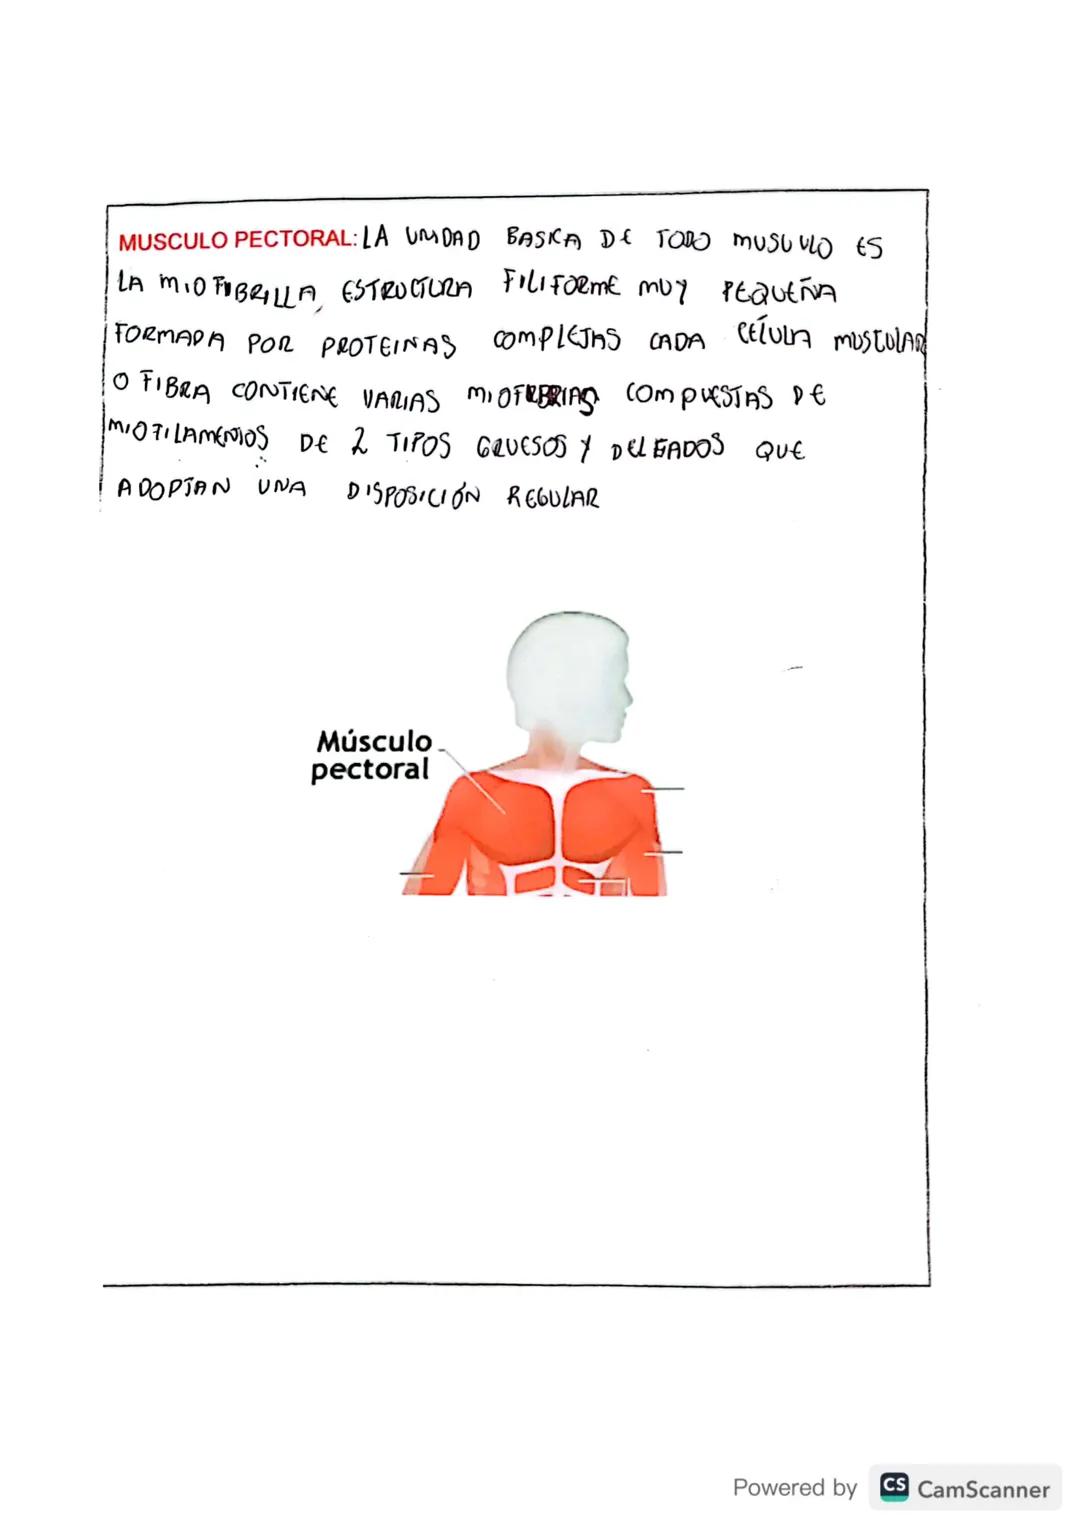 MUSCULO PECTORAL: LA UNIDAD BASICA DE TODO MUSCULO ES
LA MIOFIBRILLA, ESTRUCTURA FILIFORME MUY PEQUEÑA
FORMADA POR PROTEINAS COMPLEJAS CADA CELULA MUSCULAR
O FIBRA CONTIENE VARIAS COMPUESTAS DE
MIOFILAMENTOS DE 2 TIPOS GRUESOS Y DELGADOS QUE
ADOPTAN UNA DISPOSICIÓN REGULAR
Músculo
pectoral
Powered by CS CamScanner